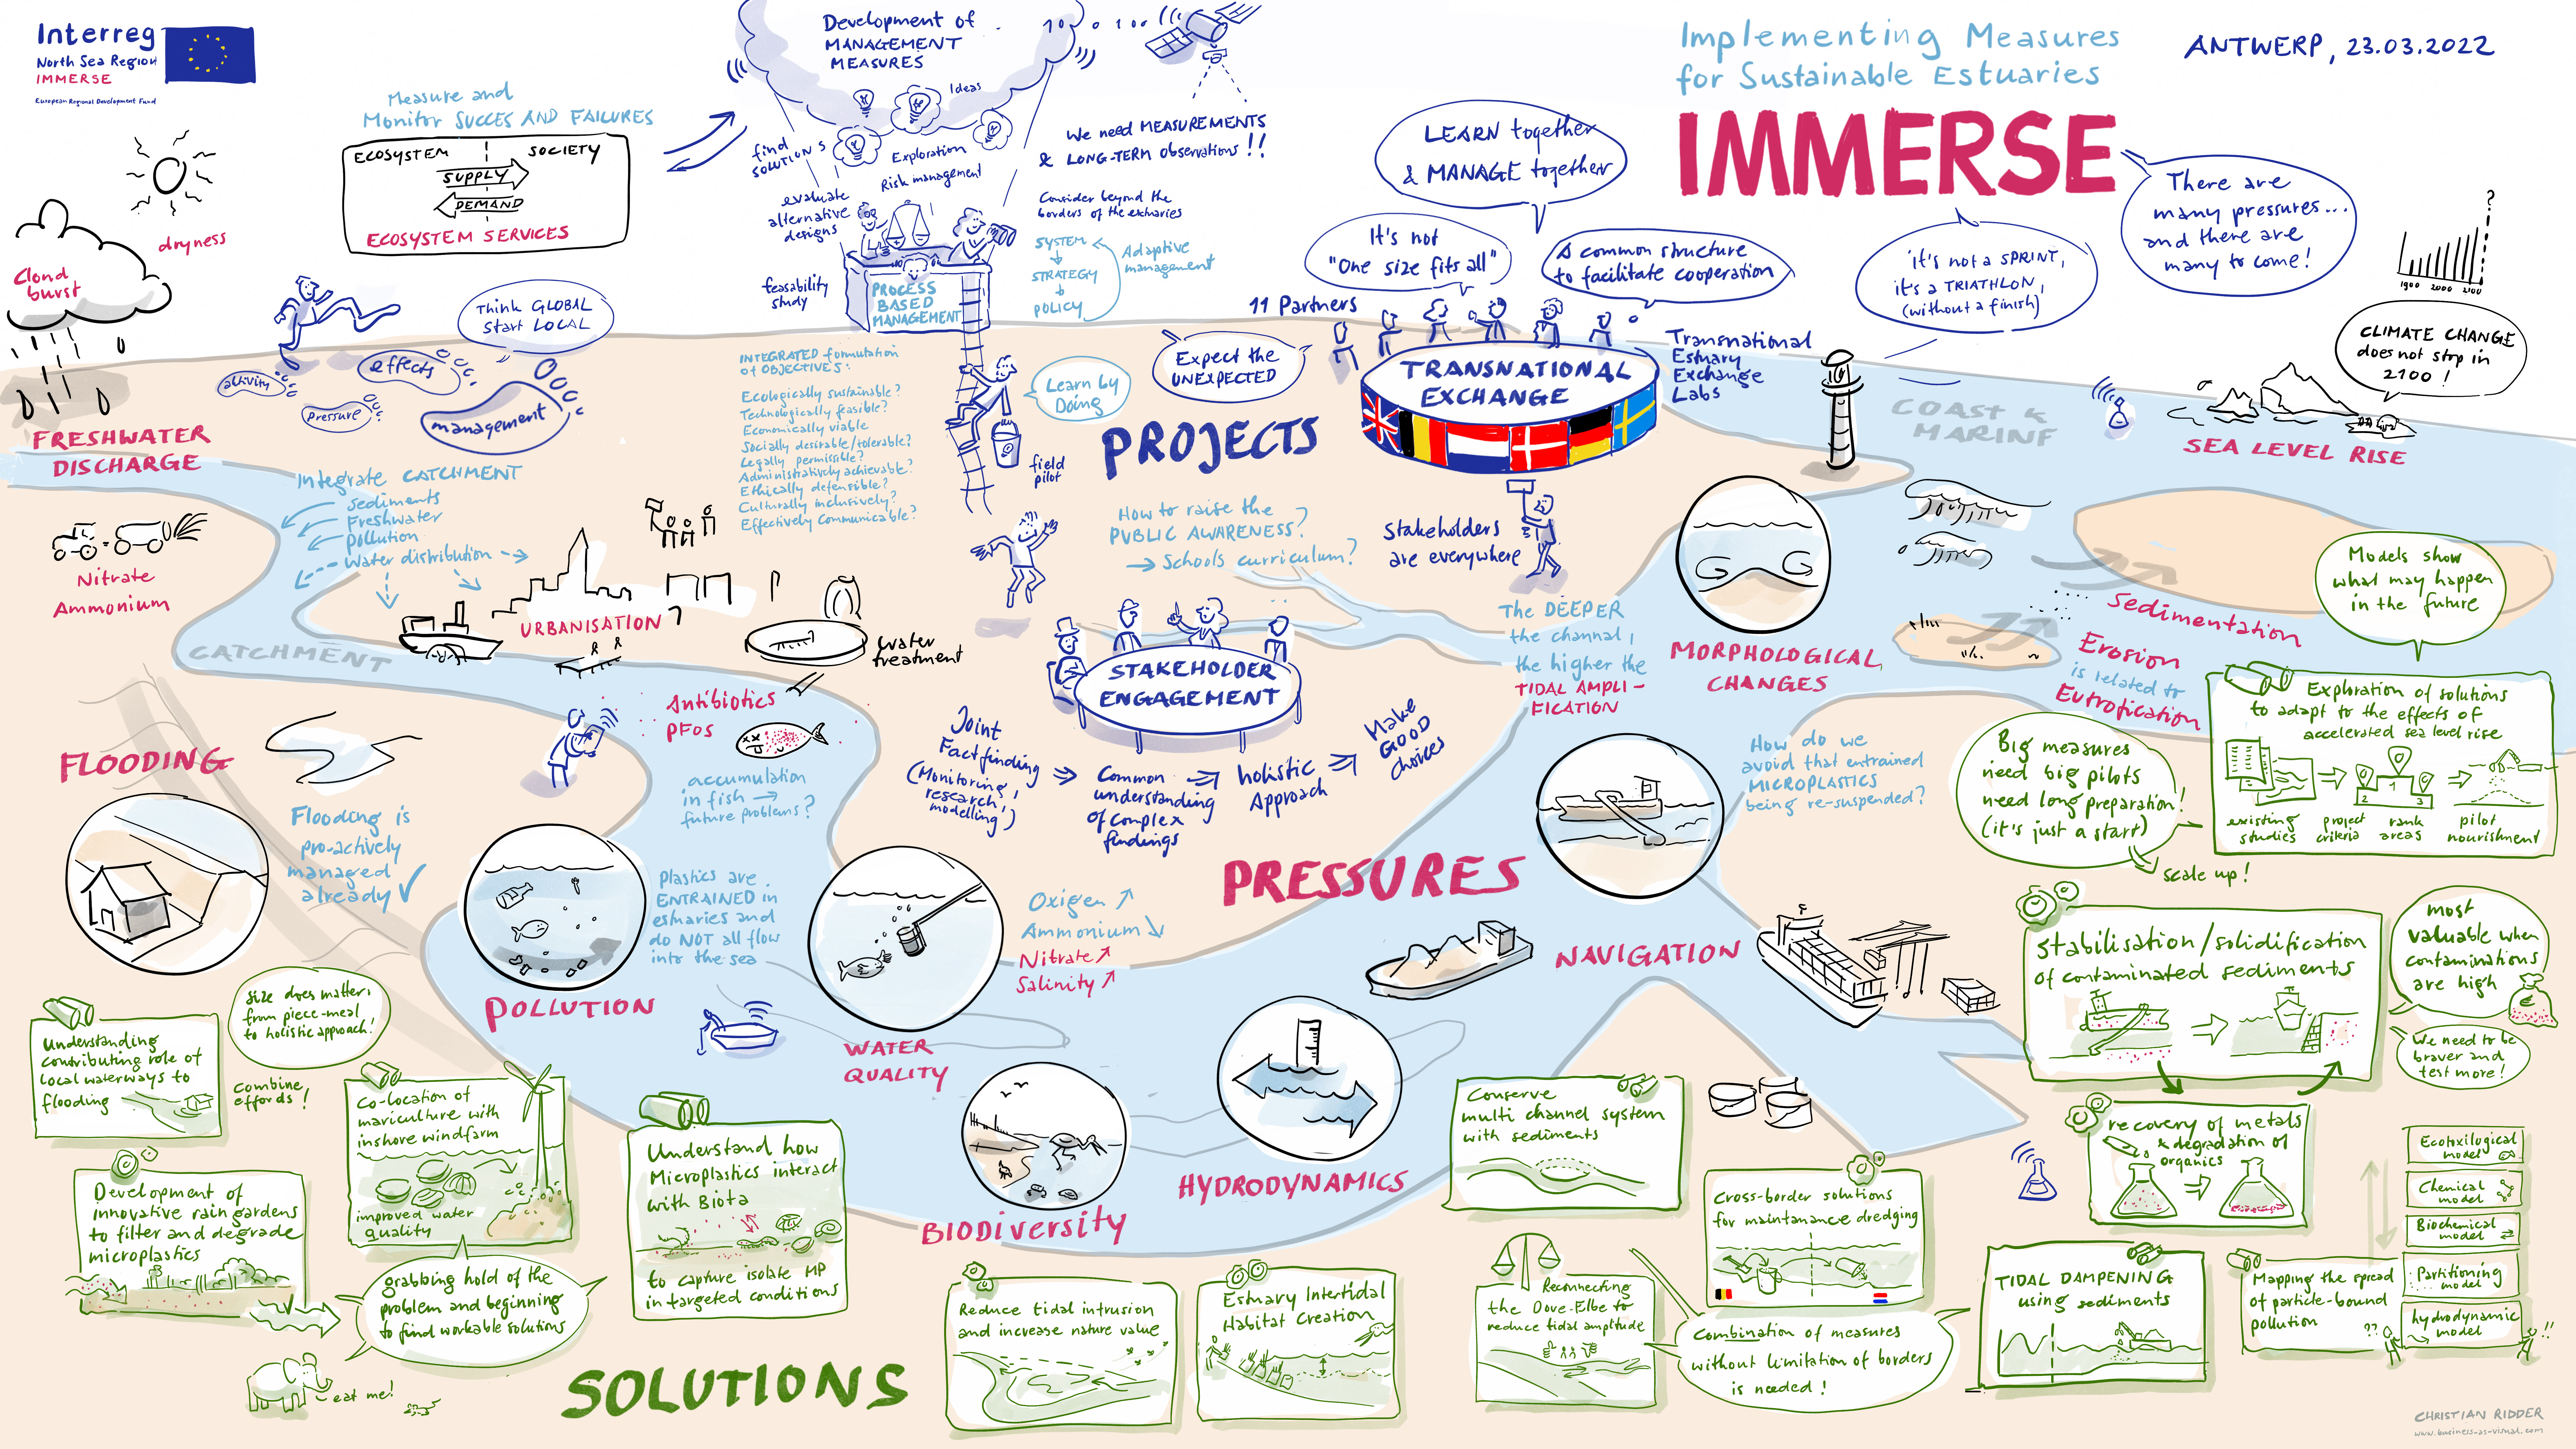 Interreg
North Sea Region
IMMERSE
European Regional Development Fund
Measure and
Monitor SUCCES AND FAILURES
ECOSYSTEM
SOCIETY
SUPPLY
DEMAND
ECOSYSTEM SERVICES
Development of
MANAGEMENT
MEASURES
Ideas
find
SOLUTIONS
Exploration
Risk management
evaluate
alternative
designs
feasability
study
PROCESS
BASED
MANAGEMENT
We need MEASUREMENTS
& LONG-TERM observations!!
Consider beyond the
borders of the estuaries
SYSTEM
STRATEGY
POLICY
Adaptive
management
LEARN together
& MANAGE together
It's not
"One size fits all"
A common structure
to facilitate cooperation
11 Partners
Expect the
UNEXPECTED
TRANSNATIONAL
EXCHANGE
Transnational
Estuary
Exchange
Labs
Implementing Measures
for Sustainable Estuaries
IMMERSE
ANTWERP, 23.03.2022
There are
many pressures...
and there are
many to come!
it's not a SPRINT,
it's a TRIATHLON,
(without a finish)
?
1900 2000 2100
CLIMATE CHANGE
does not stop in
2100!
SEA LEVEL RISE
COAST &
MARINE
dryness
Cloud
burst
Think GLOBAL
start LOCAL
activity
pressure
effects
management
FRESHWATER
DISCHARGE
Integrate CATCHMENT
sediments
Freshwater
pollution
Water distribution
INTEGRATED formulation
of OBJECTIVES:
Ecologically sustainable?
Technologically feasible?
Economically viable
Socially desirable/tolerable?
Legally permissible?
Administratively achievable?
Ethically defensible?
Culturally inclusively?
Effectively communicable?
Learn by
Doing
field
pilot
PROJECTS
How to raise the
PUBLIC AWARENESS?
→ Schools curriculum?
Stakeholders
are everywhere
Nitrate
Ammonium
CATCHMENT
URBANISATION
Water
treatment
Antibiotics
PFOS
accumulation
in fish →
future problems?
STAKEHOLDER
ENGAGEMENT
Joint
Factfinding
(Monitoring,
research,
modelling)
Common
understanding
of complex
findings
holistic
Approach
Make
GOOD
choices
The DEEPER
the channel,
the higher the
TIDAL AMPLI-
FICATION
MORPHOLOGICAL
CHANGES
Sedimentation
Erosion
is related to
Eutrofication
Models show
what may happen
in the future
Exploration of solutions
to adapt to the effects of
accelerated sea level rise
2 1 3
existing
studies
project
criteria
rank
areas
pilot
nourishment
Big measures
need big pilots
need long preparation!
(it's just a start)
scale up!
How do we
avoid that entrained
MICROPLASTICS
being re-suspended?
FLOODING
Flooding is
pro-actively
managed
already ✓
POLLUTION
Plastics are
ENTRAINED in
estuaries and
do NOT all flow
into the sea
WATER
QUALITY
Oxigen ↗
Ammonium ↘
Nitrate ↗
Salinity ↗
PRESSURES
NAVIGATION
BIODIVERSITY
HYDRODYNAMICS
stabilisation/solidification
of contaminated sediments
most
valuable when
contaminations
are high
€
We need to be
braver and
test more!
recovery of metals
& degradation of
organics
Ecotoxilogical
model
Chemical
model
Biochemical
model
Partitioning
model
hydrodynamic
model
Mapping the spread
of particle-bound
pollution
??
!!
TIDAL DAMPENING
using sediments
Conserve
multi channel system
with sediments
Cross-border solutions
for maintanance dredging
Combination of measures
without limitation of borders
is needed!
Reconnecting
the Dove-Elbe to
reduce tidal amplitude
Estuary Intertidal
Habitat Creation
Reduce tidal intrusion
and increase nature value
Understand how
Microplastics interact
with Biota
to capture isolate MP
in targeted conditions
Understanding
contributing role of
local waterways to
flooding
Size does matter:
from piece-meal
to holistic approach!
Combine
effords!
Co-location of
mariculture with
inshore windfarm
improved water
quality
Development of
innovative rain gardens
to filter and degrade
microplastics
grabbing hold of the
problem and beginning
to find workable solutions
eat me!
SOLUTIONS
CHRISTIAN RIDDER
www.business-as-visual.com